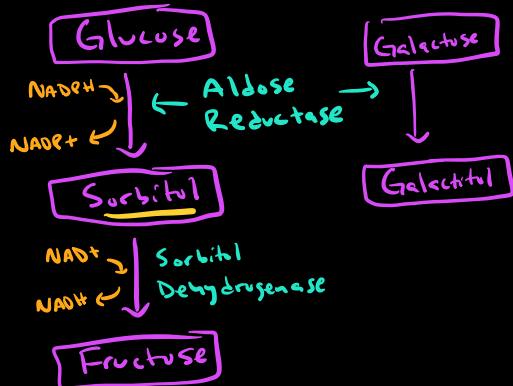 Glucose
Galactose
NADPH
Aldose
Reductase
NADP+
Sorbitol
Galactitol
NAD+
Sorbitol
Dehydrogenase
NADH
Fructose